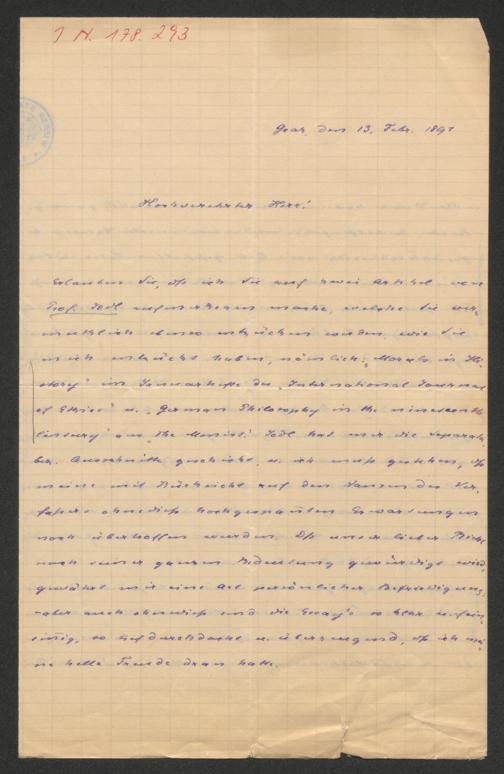 I N. 178.293
Graz, den 13. Febr. 1891
Hochverehrter Herr!
Erlauben Sie, dß ich Sie auf zwei Artikel von
Prof. Jodl aufmerksam mache, welche Sie ver-
muthlich ebenso entzücken werden, wie sie
mich entzückt haben, nämlich: „Morals in Hi-
story" im Januarhefte des „International Journal
of Ethics" u. „German Philosophy in the nineteenth
century" aus „The Monist". Jodl hat mir die Separat-
bz. Ausschnitte geschickt, u. ich muß gestehen, dß
meine mit Rücksicht auf den Namen des Ver-
fassers ohnedieß hochgespannten Erwartungen
noch übertroffen wurden. Dß unser lieber
nach seiner ganzen Bedeutung gewürdigt wird,
gewährt mir eine Art persönlicher Befriedigung;
aber auch ohnedieß sind die Essay's so klar u. fein-
sinnig, so tief durchdacht u. überzeugend, dß ich mei-
ne helle Freude dran hatte.